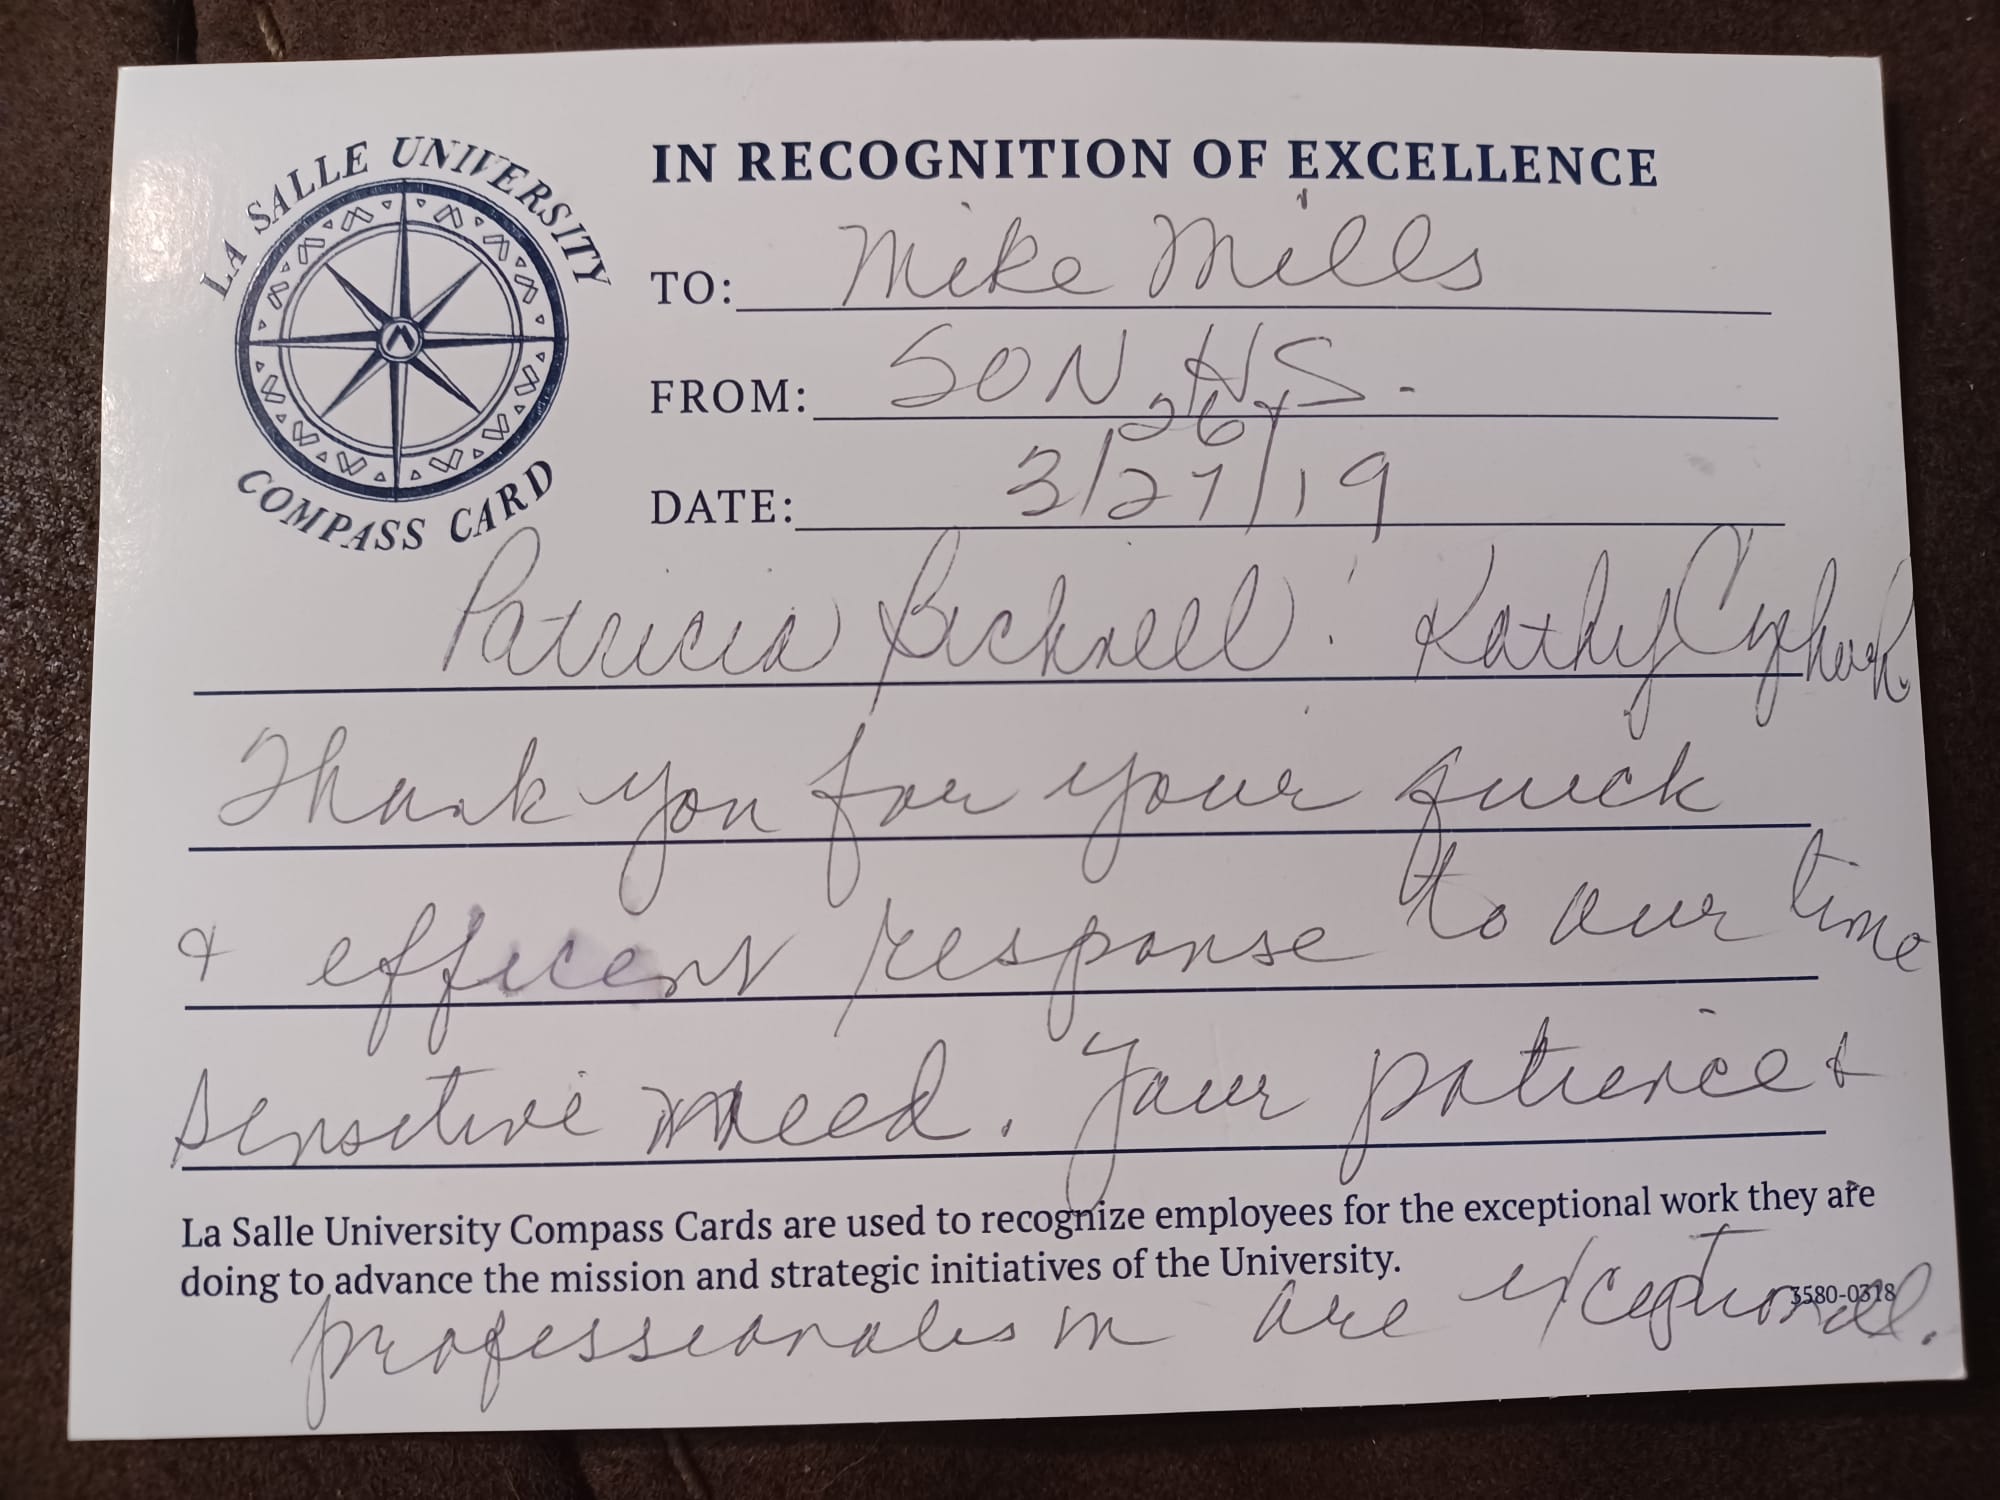 LA SALLE UNIVERSITY
COMPASS CARD
IN RECOGNITION OF EXCELLENCE
TO: Mike Mills
FROM: SON HS.
26 &
DATE: 3/27/19
Patricia Bicknell Kathy
Thank you for your quick
& efficent response to our time
sensitive need. Your patience &
La Salle University Compass Cards are used to recognize employees for the exceptional work they are
doing to advance the mission and strategic initiatives of the University.
3580-0318
professionalism are exceptional.